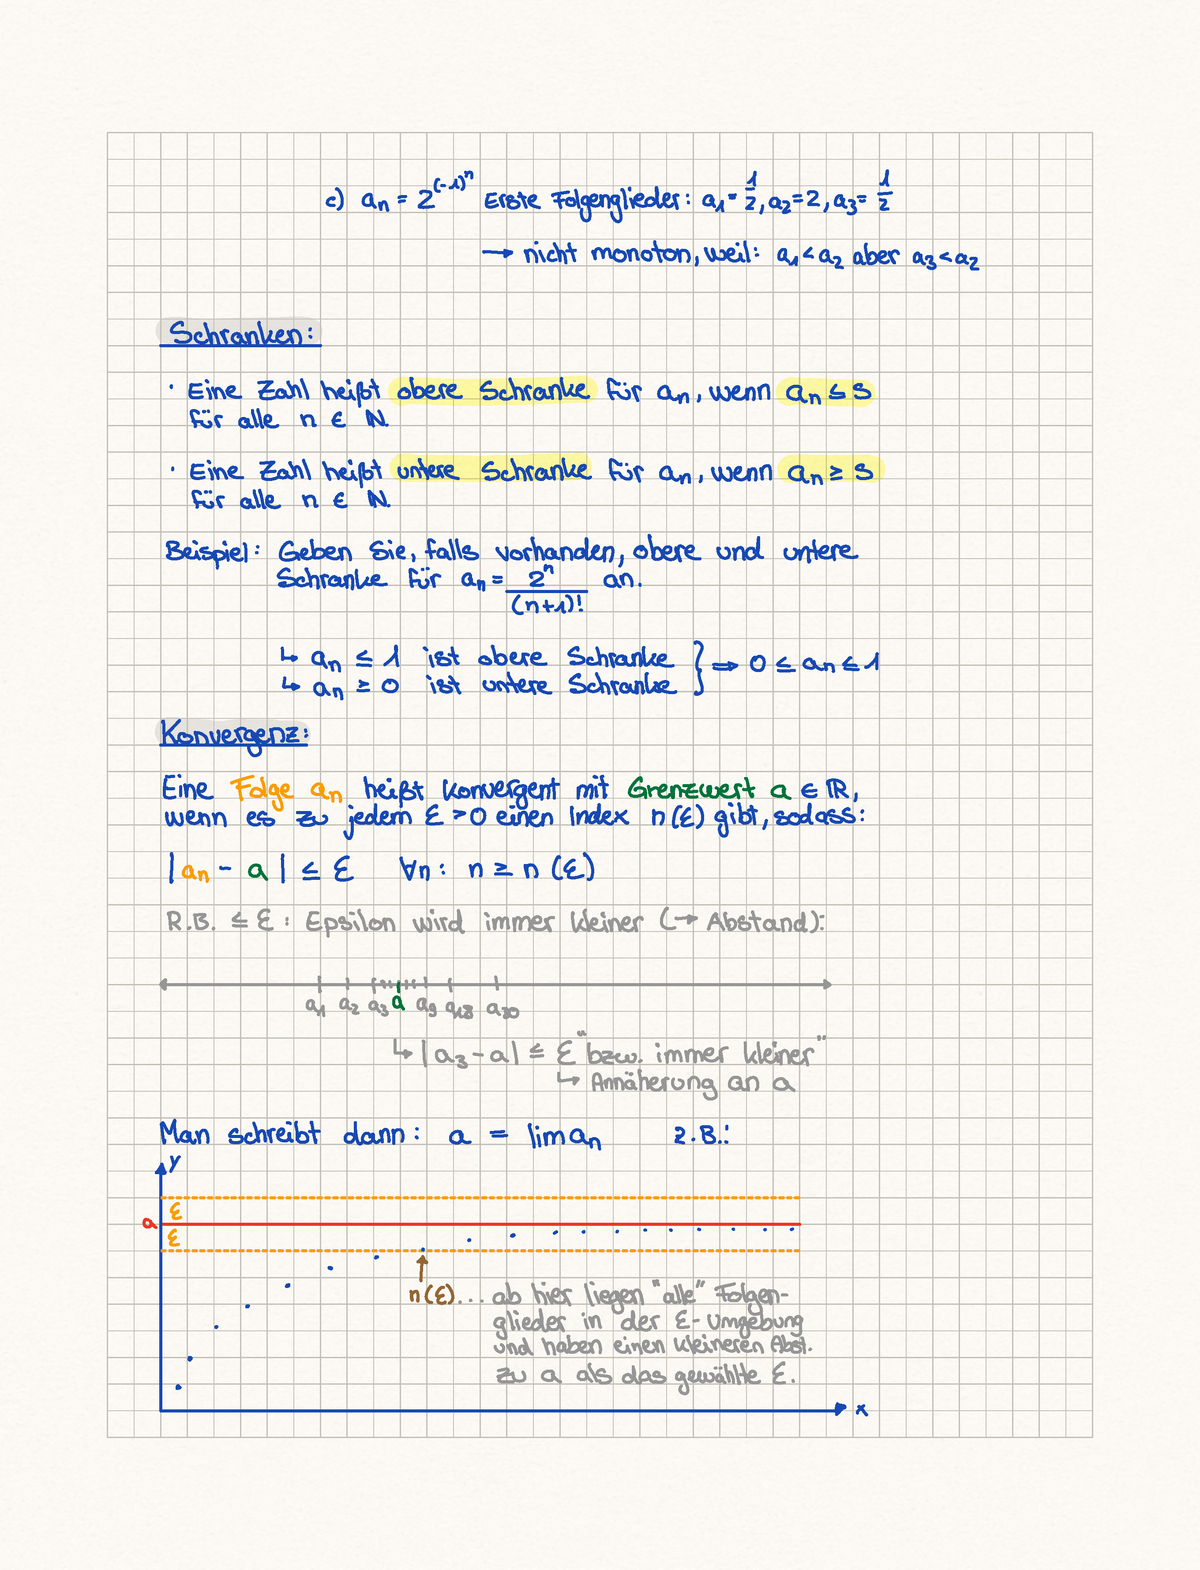 c) aₙ = 2^((-1)^n) Erste Folgenglieder: a₁ = 1/2, a₂ = 2, a₃ = 1/2
→ nicht monoton, weil: a₁ < a₂ aber a₃ < a₂
Schranken:
· Eine Zahl heißt obere Schranke für aₙ, wenn aₙ ≤ S
für alle n ∈ ℕ.
· Eine Zahl heißt untere Schranke für aₙ, wenn aₙ ≥ S
für alle n ∈ ℕ.
Beispiel: Geben Sie, falls vorhanden, obere und untere
Schranke für aₙ = 2^n/(n+1)! an.
↳ aₙ ≤ 1 ist obere Schranke } ⇒ 0 ≤ aₙ ≤ 1
↳ aₙ ≥ 0 ist untere Schranke
Konvergenz:
Eine Folge aₙ heißt konvergent mit Grenzwert a ∈ ℝ,
wenn es zu jedem ε > 0 einen Index n(ε) gibt, sodass:
|aₙ - a| ≤ ε ∀n: n ≥ n(ε)
R.B. ≤ ε: Epsilon wird immer kleiner (→ Abstand):
a₁ a₂ a₃ a a₉ a₁₈ a₃₀
↳ |a₃ - a| ≤ ε "bzw. immer kleiner"
↳ Annäherung an a
Man schreibt dann: a = lim aₙ z.B.:
y
ε
a
ε
n(ε)... ab hier liegen "alle" Folgen-
glieder in der ε-Umgebung
und haben einen kleineren Abst.
zu a als das gewählte ε.
x